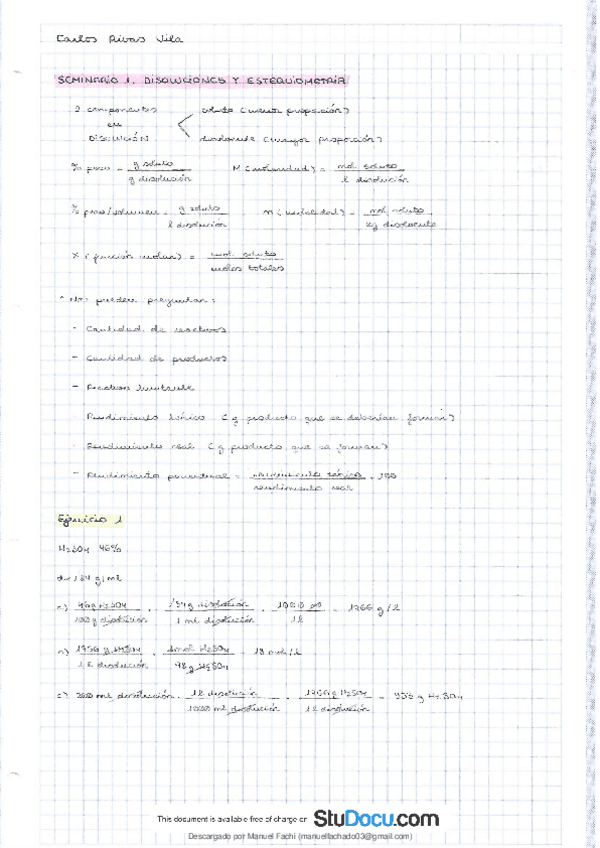 Carlos Rivas Vila
SEMINARIO 1. DISOLUCIONES Y ESTEQUIOMETRIA
2 componentes soluto (menor proporción)
en
DISOLUCIÓN disolvente (mayor proporción)
% peso = g soluto / g disolución M (molaridad) = mol soluto / l disolución
% peso/volumen = g soluto / l disolución m (molalidad) = mol soluto / kg disolvente
X (fracción molar) = mol soluto / moles totales
Nos pueden preguntar:
- Cantidad de reactivos
- Cantidad de productos
- Reactivo limitante
- Rendimiento teórico (g producto que se deberían formar)
- Rendimiento real (g producto que se forman)
- Rendimiento porcentual = rendimiento teórico / rendimiento real · 100
Ejercicio 1
H2SO4 96%
d = 1'84 g/ml
a) 96 g H2SO4 / 100 g disolución · 1'84 g disolución / 1 ml disolución · 1000 ml / 1 l = 1766 g/l
b) 1766 g H2SO4 / 1 l disolución · 1 mol H2SO4 / 98 g H2SO4 = 18 mol/l
c) ml disolución · 1 l disolución / 1000 ml disolución · 1766 g H2SO4 / 1 l disolución = g H2SO4
This document is available free of charge on StuDocu.com
Descargado por Manuel Fachi (manuelfachado03@gmail.com)